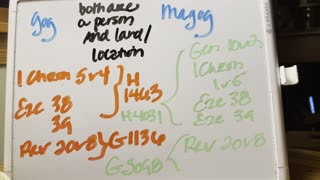 Gog
both are
a person
and land/
location
Magog
1 Chron 5v4
Eze 38
39
Rev 20v8
H
1463
G1136
Gen 10v2
1 Chron
1v5
Eze 38
Eze 39
H4031
Rev 20v8
G3098